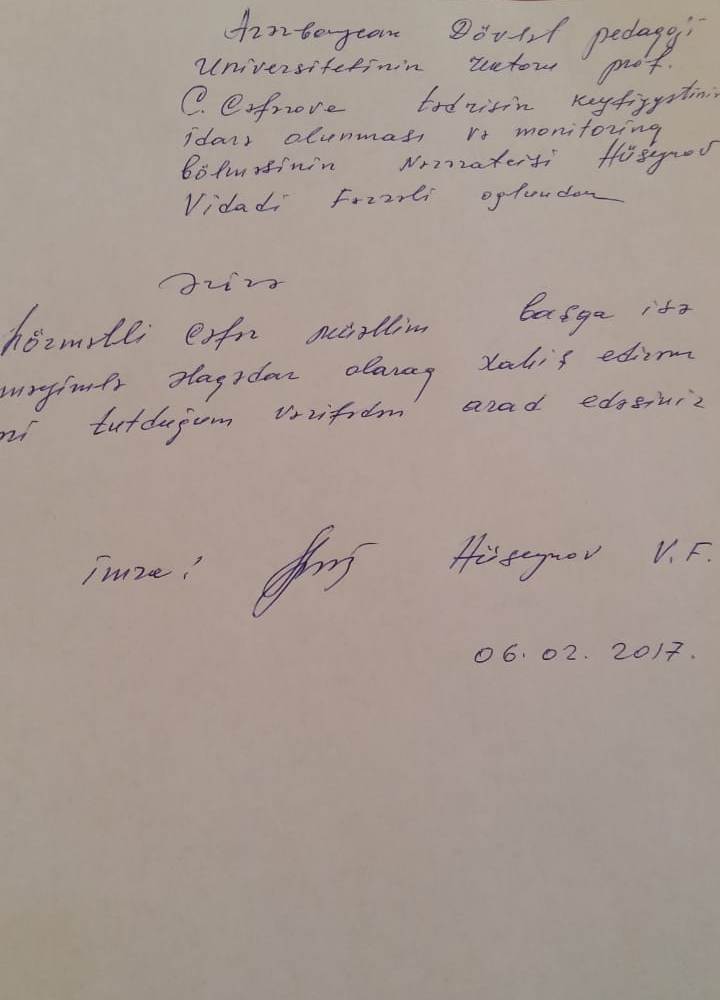 Azərbaycan Dövlət pedagoji
Universitetinin rektoru prof.
C. Cəfərova tədrisin keyfiyyətinin
idarə olunması və monitoring
bölməsinin Nəzarətcisi Hüseynov
Vidadi Fəzəli oglundan
Ərizə
Hörmətli Cəfər müəllim başga işə
əlagədar olarag xahiş edirəm
tutduğum vəzifədən azad edəsiniz
imza: Hüseynov V. F.
06. 02. 2017.